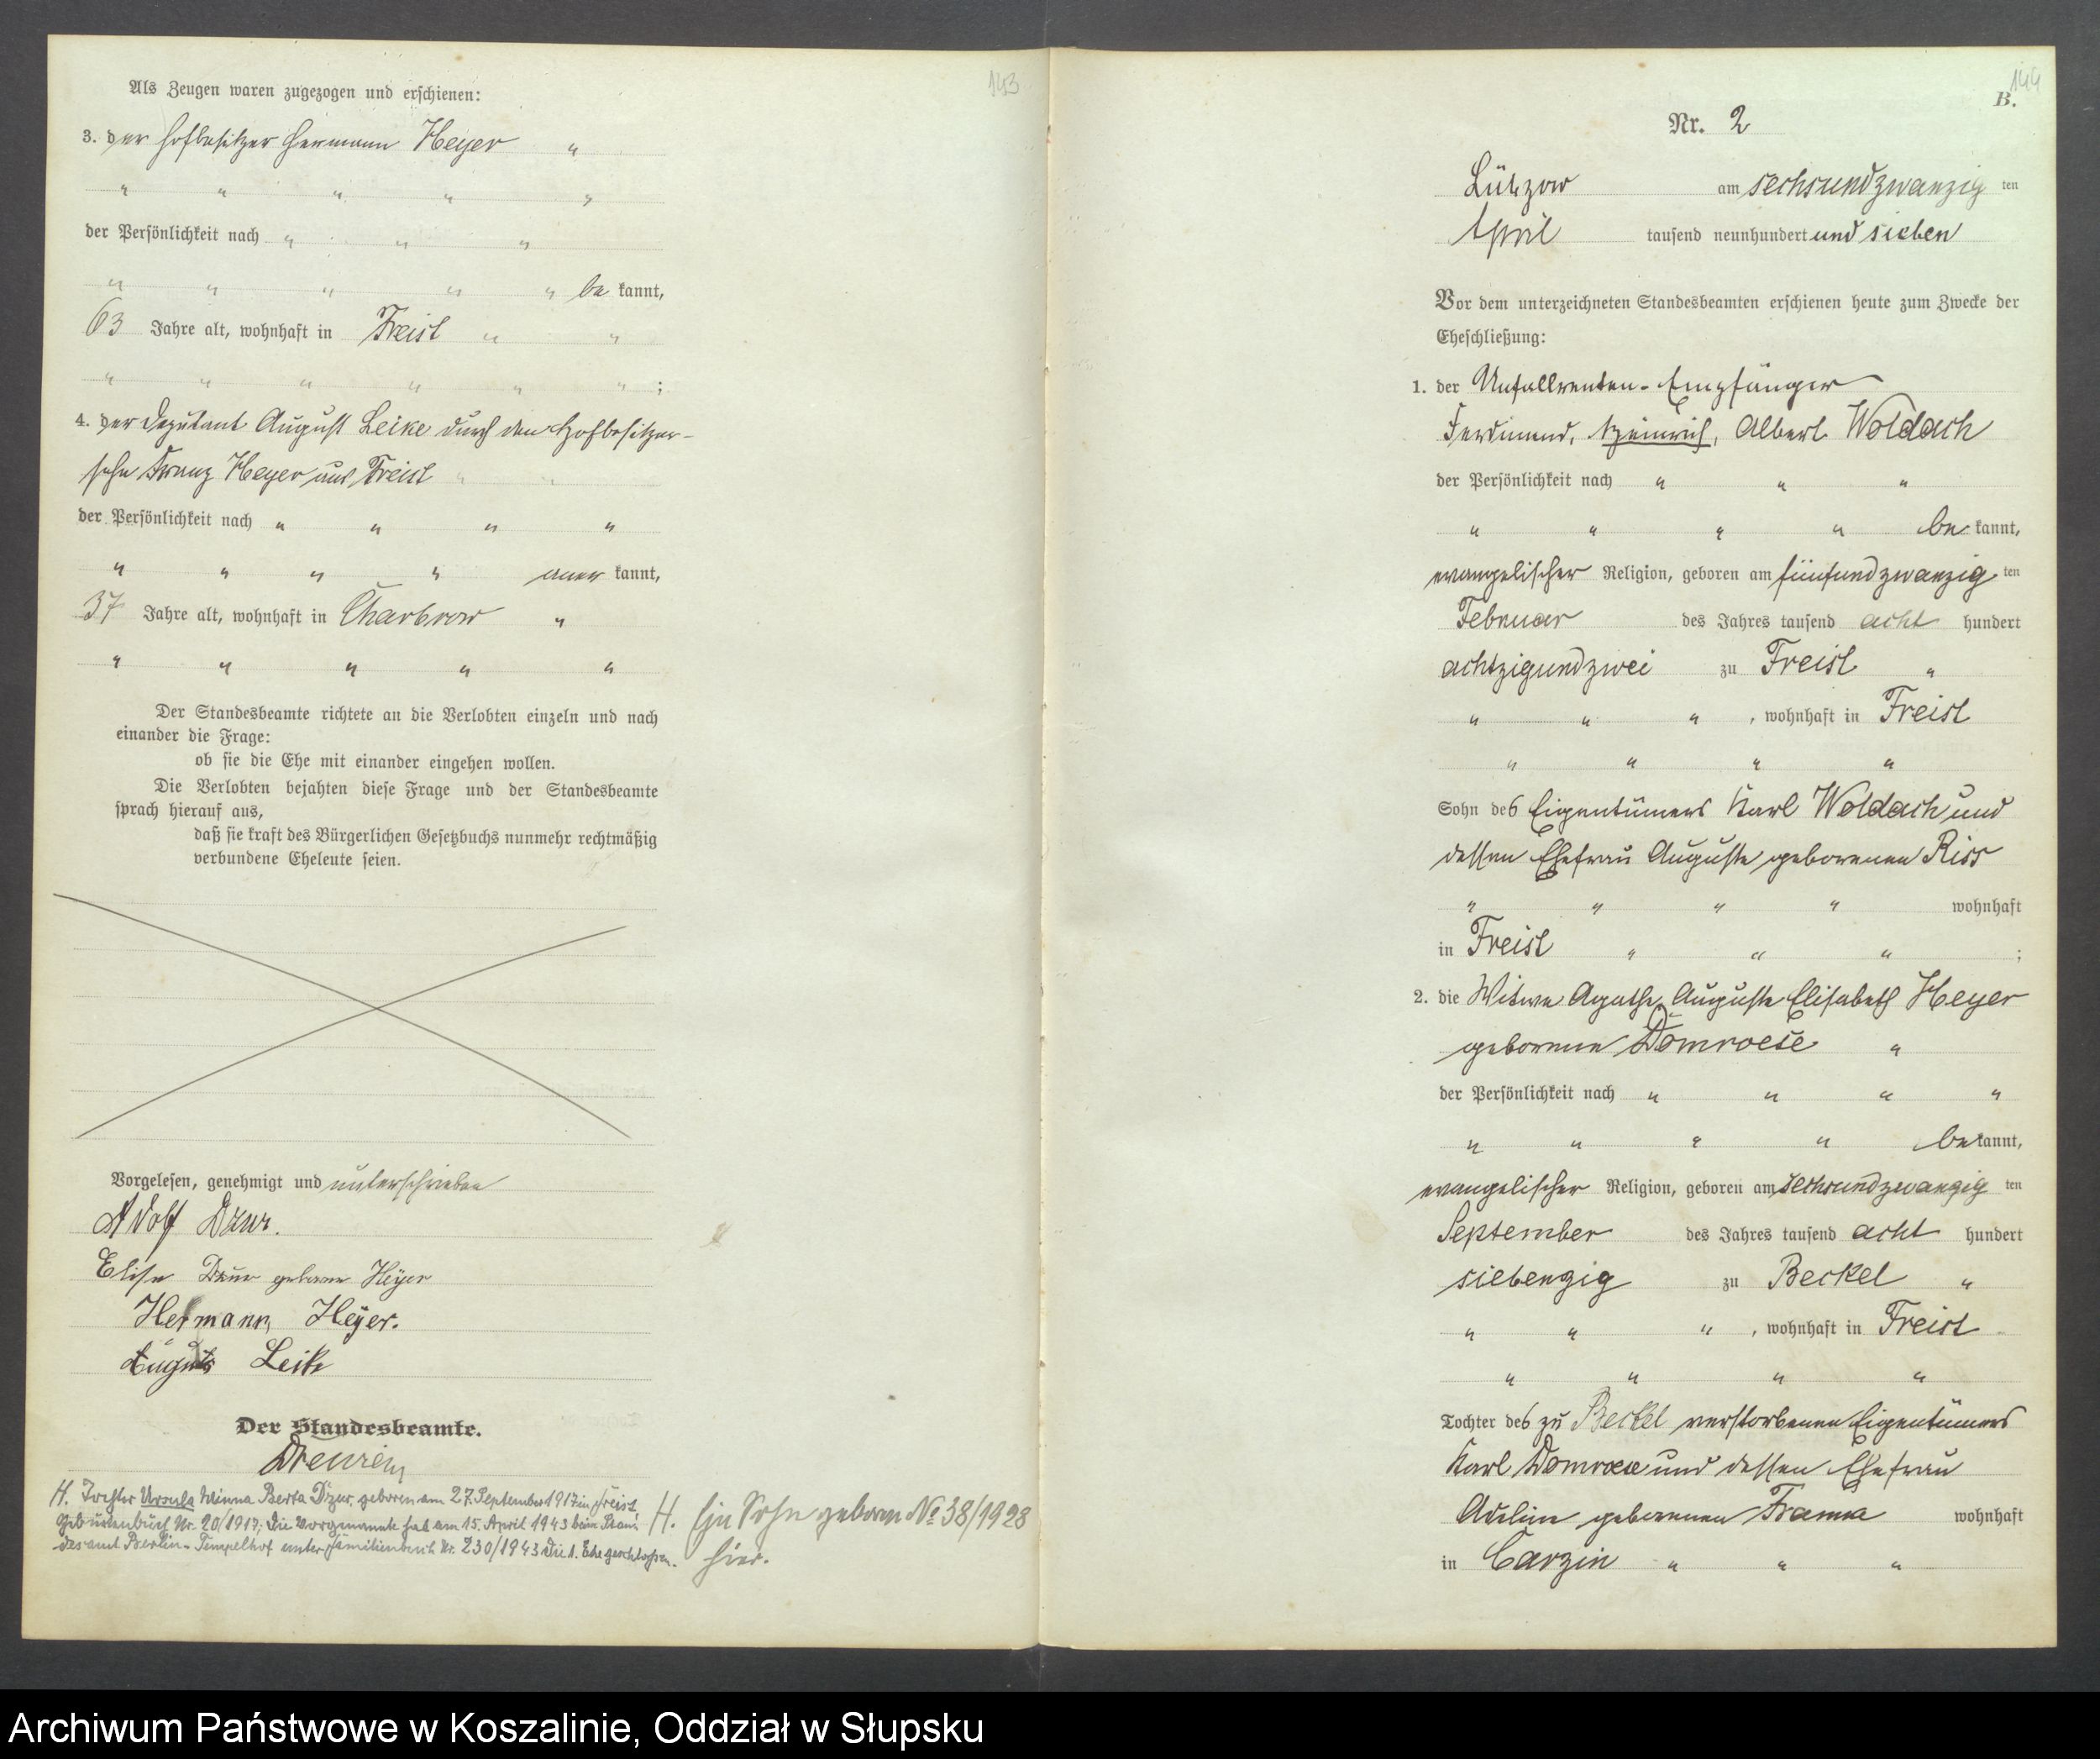 143
Als Zeugen waren zugezogen und erschienen:
3. der Hofbesitzer Hermann Heyer "
" " " " "
der Persönlichkeit nach " " "
" " " " " be kannt,
63 Jahre alt, wohnhaft in Freist " "
" " " " " " ;
4. der Deputant August Leike durch den Hofbesitzer-
sohn Franz Heyer aus Freist " "
der Persönlichkeit nach " " " "
" " " " aner kannt,
37 Jahre alt, wohnhaft in Charbrow "
" " " " "
Der Standesbeamte richtete an die Verlobten einzeln und nach
einander die Frage:
ob sie die Ehe mit einander eingehen wollen.
Die Verlobten bejahten diese Frage und der Standesbeamte
sprach hierauf aus,
daß sie kraft des Bürgerlichen Gesetzbuchs nunmehr rechtmäßig
verbundene Eheleute seien.
Vorgelesen, genehmigt und unterschrieben
Adolf Dzur.
Elise Dzur geborene Heyer
Hermann Heyer.
August Leike
Der Standesbeamte.
H. Tochter Ursula Minna Berta Dzur, geboren am 27. September 1917 in Freist
Geburtenbuch Nr. 20/1917; die Vorgenannte hat am 15. April 1943 beim Stan-
desamt Berlin-Tempelhof unter Familienbuch Nr. 230/1943 die 1. Ehe geschlossen.
H. Ein Sohn geboren No 38/1928
hier.
144
B.
Nr. 2
Lützow am sechsundzwanzig ten
April tausend neunhundert und sieben
Vor dem unterzeichneten Standesbeamten erschienen heute zum Zwecke der
Eheschließung:
1. der Unfallrenten-Empfänger
Ferdinand, Heinrich, Albert Woldach
der Persönlichkeit nach " " "
" " " " be kannt,
evangelischer Religion, geboren am fünfundzwanzig ten
Februar des Jahres tausend acht hundert
achtzigundzwei zu Freist "
" " " , wohnhaft in Freist
" " " "
Sohn des Eigentümers Karl Woldach und
dessen Ehefrau Auguste geborenen Riss
" " " " wohnhaft
in Freist " " " ;
2. die Witwe Agathe, Auguste Elisabeth Heyer
geborene Domroese "
der Persönlichkeit nach " " " "
" " " " be kannt,
evangelischer Religion, geboren am sechsundzwanzig ten
September des Jahres tausend acht hundert
siebenzig zu Beckel "
" " " , wohnhaft in Freist
" " " "
Tochter des zu Beckel verstorbenen Eigentümers
Karl Domroese und dessen Ehefrau
Adeline geborenen Framke wohnhaft
in Carzin " " "
Archiwum Państwowe w Koszalinie, Oddział w Słupsku